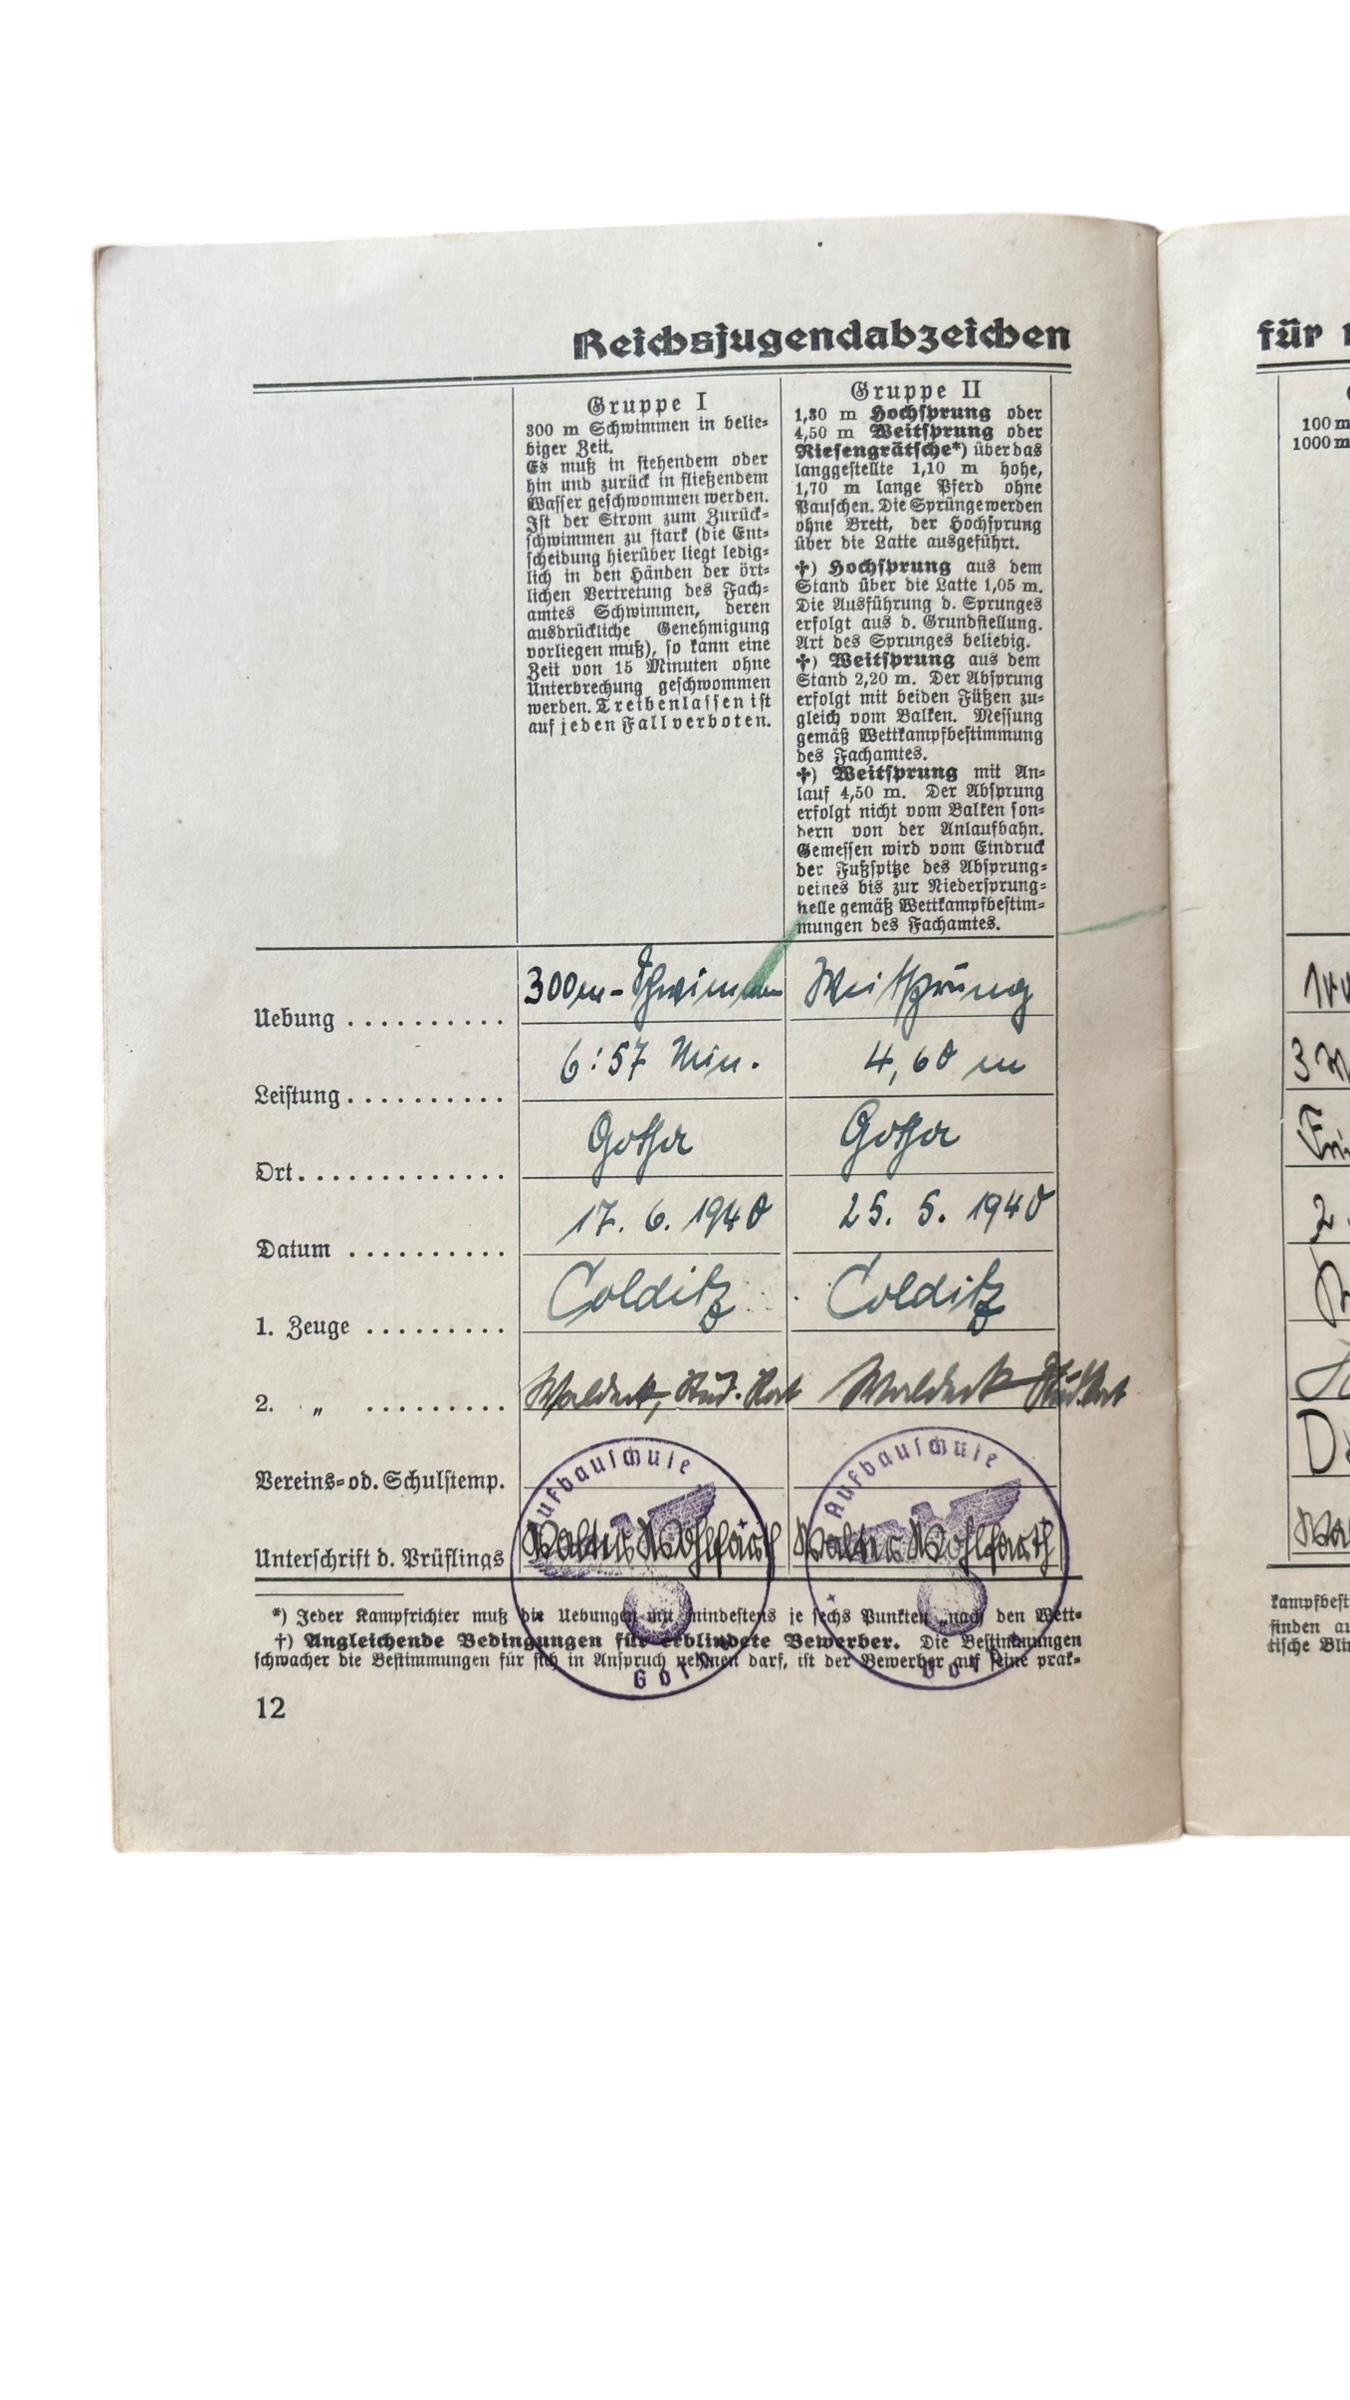 Reichsjugendabzeichen
Gruppe I
300 m Schwimmen in belie-
biger Zeit.
Es muß in stehendem oder
hin und zurück in fließendem
Wasser geschwommen werden.
Ist der Strom zum Zurück-
schwimmen zu stark (die Ent-
scheidung hierüber liegt ledig-
lich in den Händen der ört-
lichen Vertretung des Fach-
amtes Schwimmen, deren
ausdrückliche Genehmigung
vorliegen muß), so kann eine
Zeit von 15 Minuten ohne
Unterbrechung geschwommen
werden. Treibenlassen ist
auf jeden Fall verboten.
Gruppe II
1,30 m Hochsprung oder
4,50 m Weitsprung oder
Riesengrätsche*) über das
langgestellte 1,10 m hohe,
1,70 m lange Pferd ohne
Pauschen. Die Sprünge werden
ohne Brett, der Hochsprung
über die Latte ausgeführt.
✢) Hochsprung aus dem
Stand über die Latte 1,05 m.
Die Ausführung d. Sprunges
erfolgt aus d. Grundstellung.
Art des Sprunges beliebig.
✢) Weitsprung aus dem
Stand 2,20 m. Der Absprung
erfolgt mit beiden Füßen zu-
gleich vom Balken. Messung
gemäß Wettkampfbestimmung
des Fachamtes.
✢) Weitsprung mit An-
lauf 4,50 m. Der Absprung
erfolgt nicht vom Balken son-
dern von der Anlaufbahn.
Gemessen wird vom Eindruck
der Fußspitze des Absprung-
beines bis zur Niedersprung-
stelle gemäß Wettkampfbestim-
mungen des Fachamtes.
Uebung .......... 300m-Schwimmen Weitsprung
Leistung .......... 6:57 Min. 4,60 m
Ort .............. Gotha Gotha
Datum .......... 17. 6. 1940 25. 5. 1940
1. Zeuge ......... Colditz Colditz
2. „ ......... Waldeck, Stud. Rat Waldeck Stud. Rat
Vereins- od. Schulstemp.
Aufbauschule Gotha
Aufbauschule Gotha
Unterschrift d. Prüflings Walter Wohlfarth Walter Wohlfarth
*) Jeder Kampfrichter muß die Uebungen mit mindestens je sechs Punkten „nach den Wett-
†) Angleichende Bedingungen für erblindete Bewerber. Die Bestimmungen
schwacher die Bestimmungen für sich in Anspruch nehmen darf, ist der Bewerber auf seine prak-
12
für
100 m
1000 m
kampfbest
finden au
tische Bli